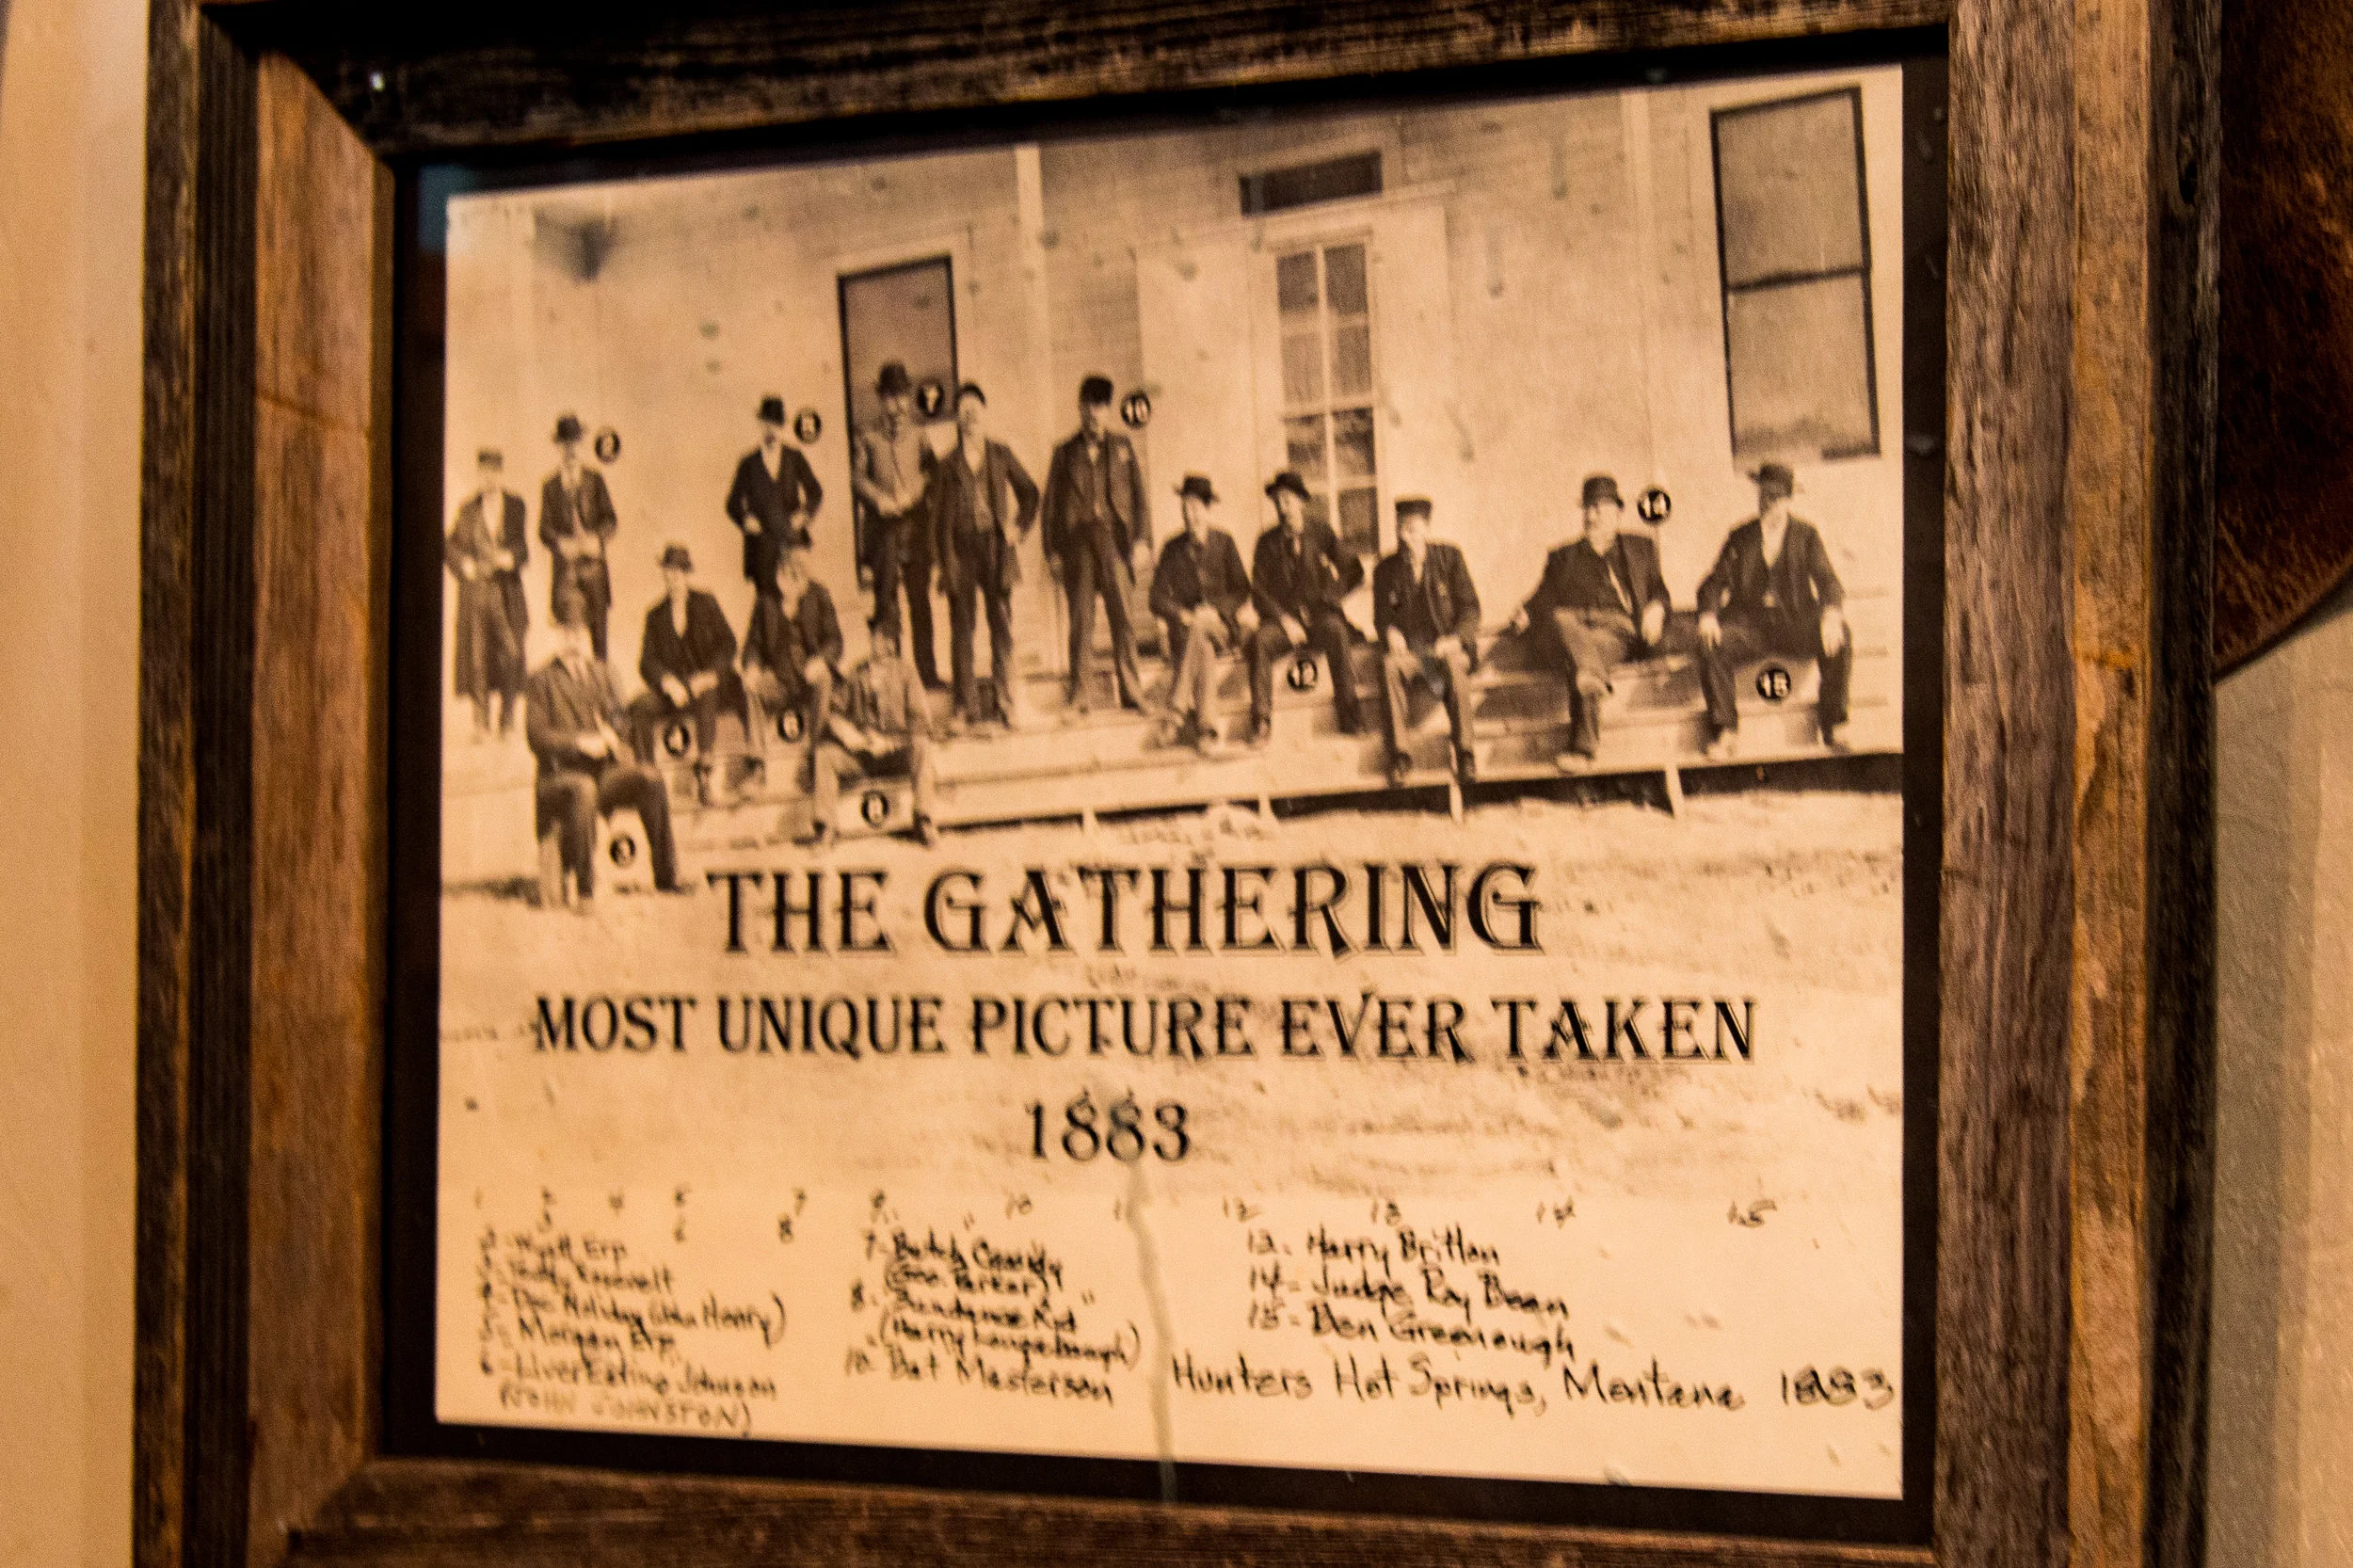 2
5
7
10
14
12
15
4
6
8
3
THE GATHERING
MOST UNIQUE PICTURE EVER TAKEN
1883
1 2 4 5 7 9 10 11 12 13 14 15
3 6 8
2- Wyatt Erp
Teddy Roosevelt
4- Doc Holiday (John Henry)
5- Morgan Erp
6- Liver Eating Johnson
(JOHN JOHNSTON)
7- Butch Cassidy
(Geo. Parker)
8- Sundance Kid
(Harry Longabaugh)
10- Bat Masterson
13- Harry Britton
14- Judge Roy Bean
15- Ben Greenough
Hunters Hot Springs, Montana 1883